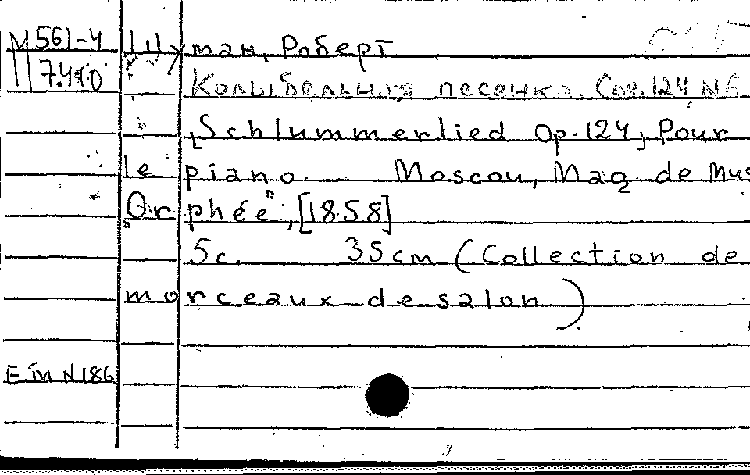 М 561-4 Шуман, Роберт
7.490 Колыбельная песенка. Соч. 124 №6
[Schlummerlied Op. 124] Pour
le piano. Moscou, Mag de Mus
"Orphée", [1858]
5 с. 35 см (Collection de
morceaux de salon)
Е тм N 186